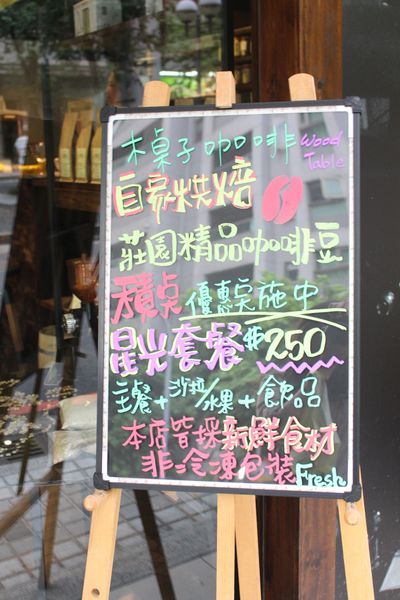 木桌子咖啡 Wood Table
自家烘焙
莊園精品咖啡豆
積桌優惠実施中
星光套餐 $250
主餐+沙拉/水果+飲品
本店皆採新鮮食材
非冷凍包裝 Fresh